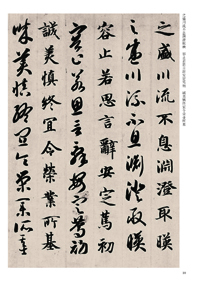 之盛川流不息淵澄取暎
之盛川流不息淵澄取暎
容止若思言辭安定篤初
容止若思言辭安定篤初
誠美慎終宜令榮業所基
誠美慎終宜令榮業所基